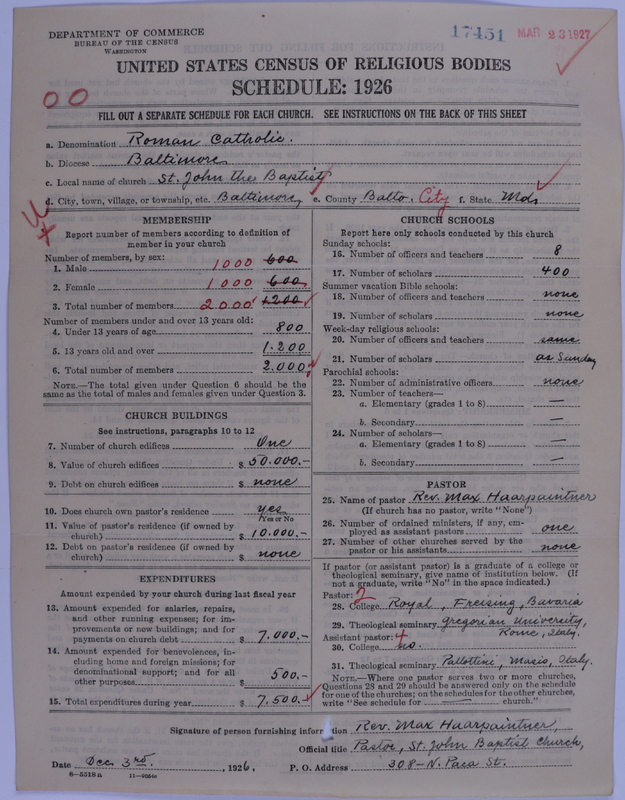 DEPARTMENT OF COMMERCE
BUREAU OF THE CENSUS
WASHINGTON
17451
MAR 23 1927
UNITED STATES CENSUS OF RELIGIOUS BODIES
SCHEDULE: 1926
00
FILL OUT A SEPARATE SCHEDULE FOR EACH CHURCH. SEE INSTRUCTIONS ON THE BACK OF THIS SHEET
a. Denomination Roman Catholic.
b. Diocese Baltimore
c. Local name of church St. John the Baptist
d. City, town, village, or township, etc. Baltimore, e. County Balto. City f. State Md.
MEMBERSHIP
Report number of members according to definition of
member in your church
Number of members, by sex:
1. Male 1000 600
2. Female 1000 600
3. Total number of members 2000 1200
Number of members under and over 13 years old:
4. Under 13 years of age 800
5. 13 years old and over 1.200
6. Total number of members 2.000
NOTE.—The total given under Question 6 should be
same as the total of males and females given under Question 3.
CHURCH BUILDINGS
See instructions, paragraphs 10 to 12
7. Number of church edifices One
8. Value of church edifices $ 50.000.-
9. Debt on church edifices $ none
10. Does church own pastor's residence yes
(Yes or No)
11. Value of pastor's residence (if owned by
church) $ 10.000.-
12. Debt on pastor's residence (if owned by
church) $ none
EXPENDITURES
Amount expended by your church during last fiscal year
13. Amount expended for salaries, repairs,
and other running expenses; for im-
provements or new buildings; and for
payments on church debt $ 7.000.-
14. Amount expended for benevolences, in-
cluding home and foreign missions; for
denominational support; and for all
other purposes $ 500.-
15. Total expenditures during year $ 7.500.-
CHURCH SCHOOLS
Report here only schools conducted by this church
Sunday schools:
16. Number of officers and teachers 8
17. Number of scholars 400
Summer vacation Bible schools:
18. Number of officers and teachers none
19. Number of scholars none
Week-day religious schools:
20. Number of officers and teachers same
21. Number of scholars as Sunday
Parochial schools:
22. Number of administrative officers none
23. Number of teachers—
a. Elementary (grades 1 to 8) —
b. Secondary —
24. Number of scholars—
a. Elementary (grades 1 to 8) —
b. Secondary —
PASTOR
25. Name of pastor Rev. Max Haarpaintner
(If church has no pastor, write "None")
26. Number of ordained ministers, if any, em-
ployed as assistant pastors one
27. Number of other churches served by the
pastor or his assistants none
If pastor (or assistant pastor) is a graduate of a college or
theological seminary, give name of institution below. (If
not a graduate, write "No" in the space indicated.)
Pastor: 2
28. College Royal, Freising, Bavaria
29. Theological seminary Gregorian University,
Rome, Italy.
Assistant pastor: 4
30. College no.
31. Theological seminary Pallottini, Masio, Italy.
NOTE.—Where one pastor serves two or more churches,
Questions 28 and 29 should be answered only on the schedule
for one of the churches; on the schedules for the other churches,
write "See schedule for — church."
Signature of person furnishing information Rev. Max Haarpaintner,
Official title Pastor, St. John Baptist Church,
Date Dec. 3rd., 1926. P. O. Address 308-N. Paca St.
8—5518 a 11—9064a